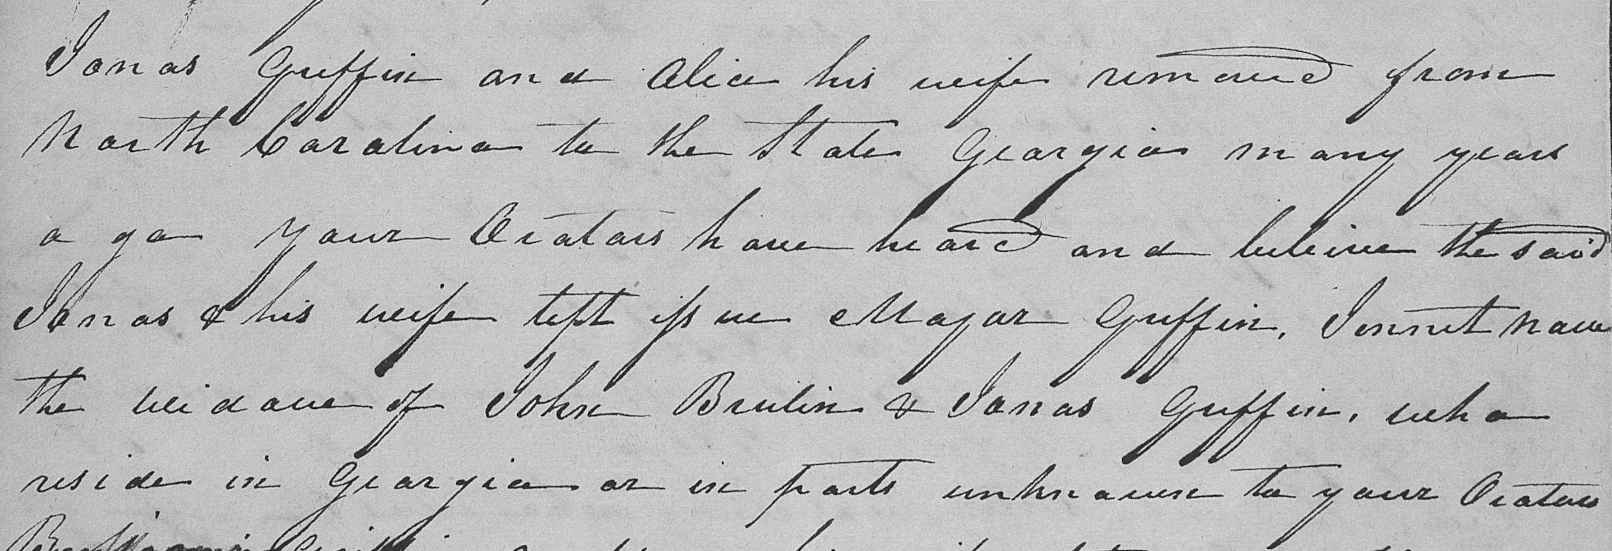 Jonas Griffin and Alice his wife removed from
North Carolina to the State Georgia many years
a go your Orators have heard and beleive the said
Jonas & his wife left issue Major Griffin, Jennet now
the widow of John Brilin & Jonas Griffin, who
reside in Georgia or in parts unknown to your Orators